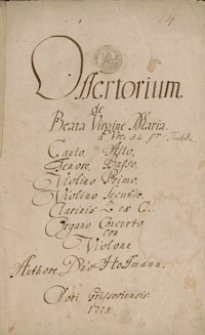 Offertorium
de
Beata Virgine Maria.
Canto, Alto,
Tenore, Basso,
Violino Primo,
Violino Secundo,
Clarinis 2 ex C.
Organo Concerto
con
Violone
Authore Hoffmann.
Chori